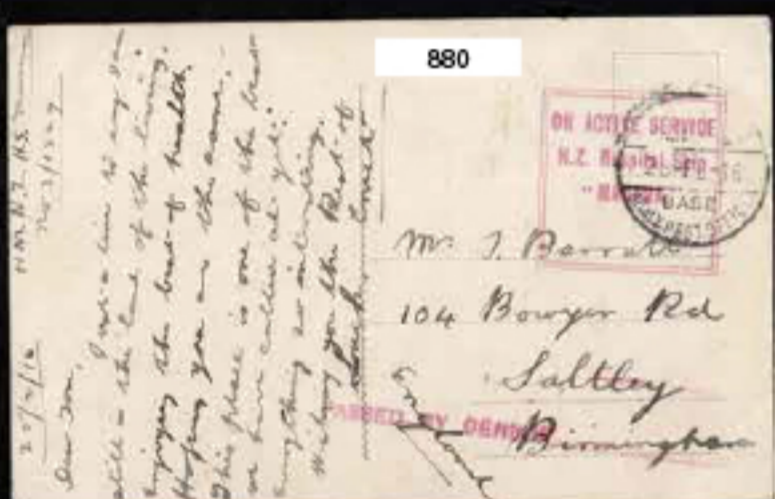 880
ON ACTIVE SERVICE
N.Z. Hospital Ship
BASE
Mr. J. Barratt
104 Bowyer Rd
Saltley
Birmingham
England
PASSED BY CENSOR
20/2/16
Dear
Just a line to say I'm
still in the land of the living &
enjoying the best of health.
Hoping you are the same.
This place is one of the best
we have called at yet.
anything so interesting.
Wishing you the Best of